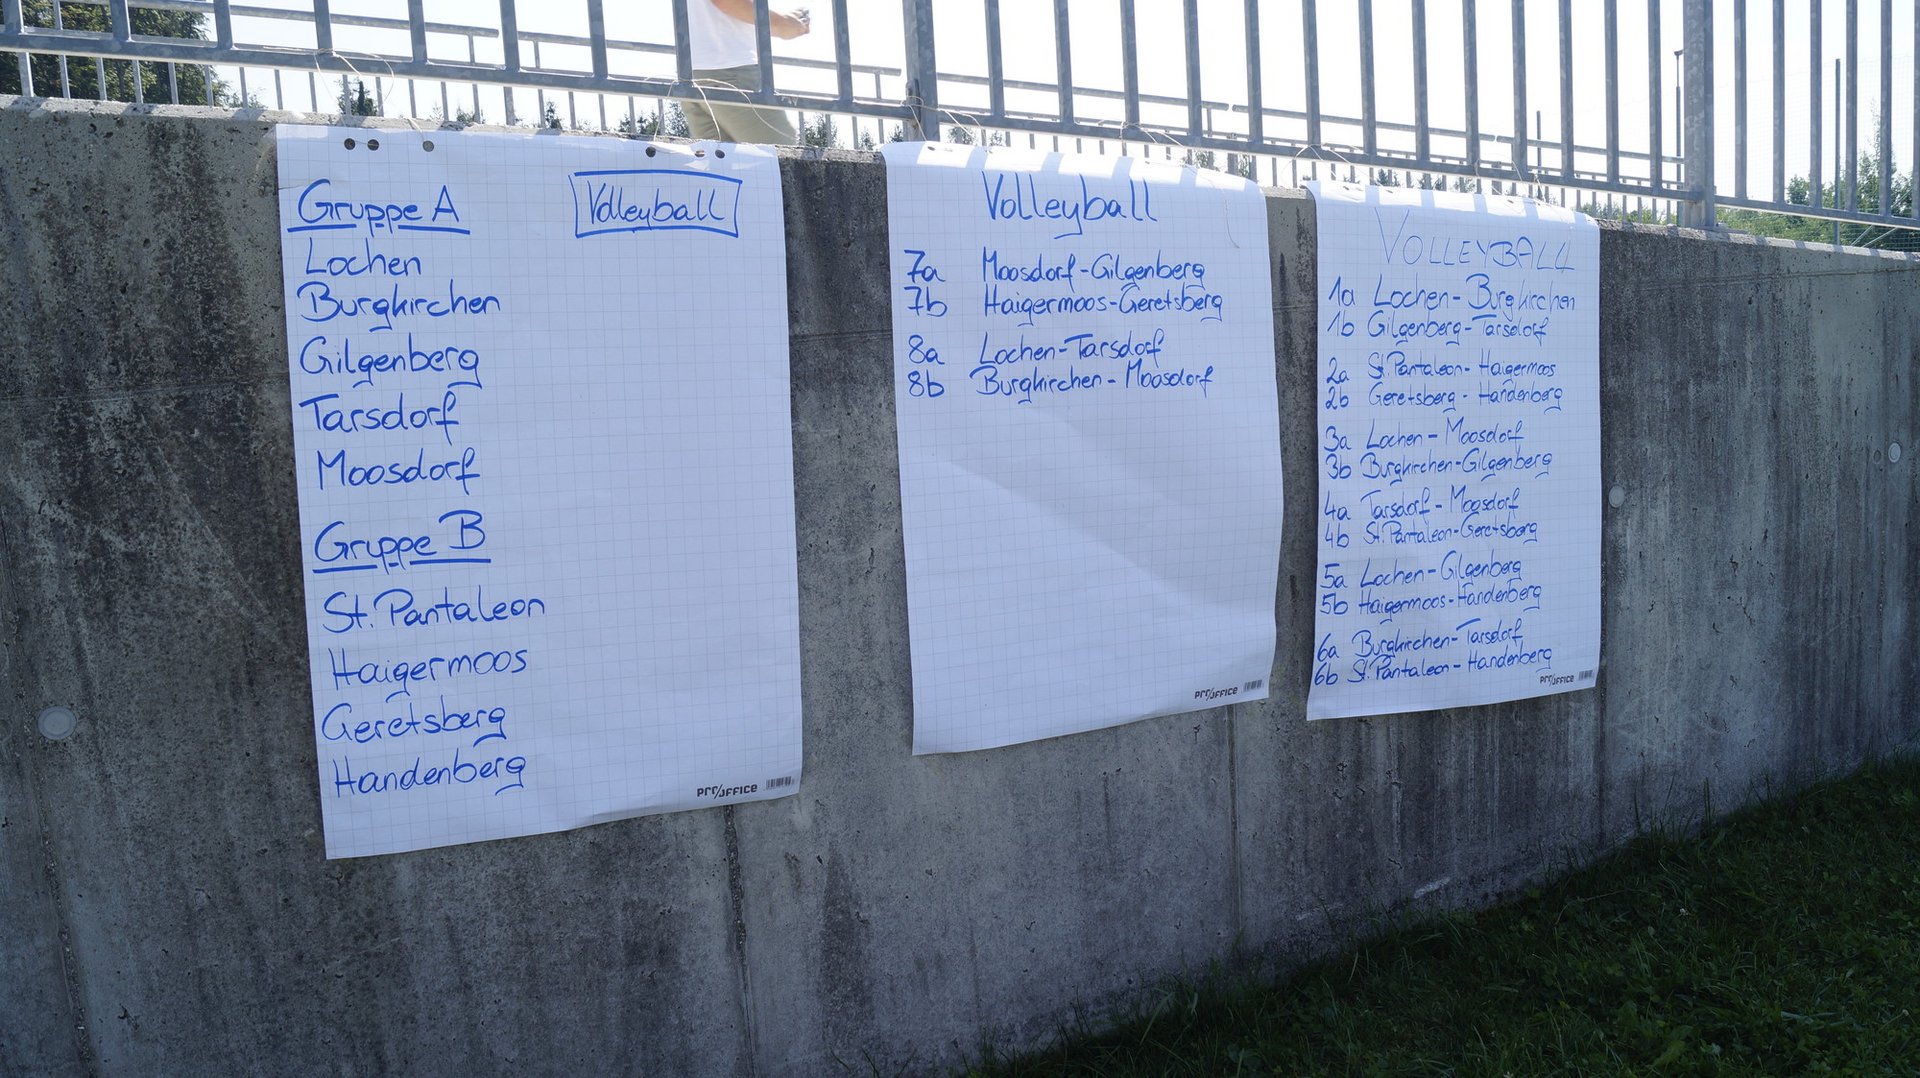 Gruppe A
Volleyball
Lochen
Burgkirchen
Gilgenberg
Tarsdorf
Moosdorf
Gruppe B
St. Pantaleon
Haigermoos
Geretsberg
Handenberg
PRO/OFFICE
Volleyball
7a Moosdorf-Gilgenberg
7b Haigermoos-Geretsberg
8a Lochen-Tarsdorf
8b Burgkirchen-Moosdorf
PRO/OFFICE
VOLLEYBALL
1a Lochen-Burgkirchen
1b Gilgenberg-Tarsdorf
2a St. Pantaleon-Haigermoos
2b Geretsberg-Handenberg
3a Lochen-Moosdorf
3b Burgkirchen-Gilgenberg
4a Tarsdorf-Moosdorf
4b St. Pantaleon-Geretsberg
5a Lochen-Gilgenberg
5b Haigermoos-Handenberg
6a Burgkirchen-Tarsdorf
6b St. Pantaleon-Handenberg
PRO/OFFICE